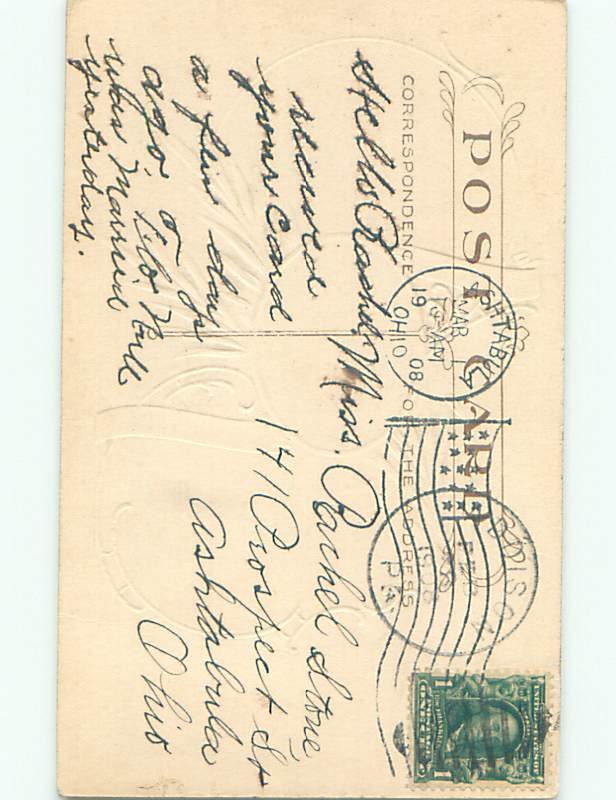 POST CARD
CORRESPONDENCE
FOR THE ADDRESS
ASHTABULA
MAR
AM
1908
OHIO
1908
PA.
Hello Rachel
recived
your card
a few days
ago
was married
yesterday.
Miss. Rachel Stone
141 Prospect St
Ashtabula
Ohio
1
1